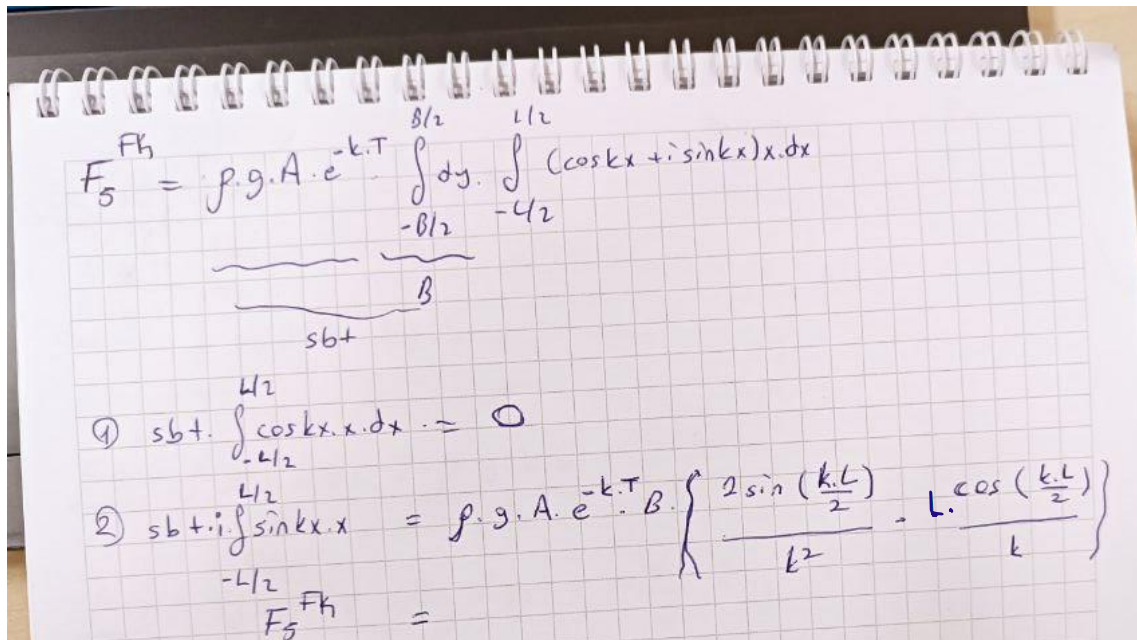 F₅^Fk = ρ.g.A.e^-k.T . ∫_-B/2^B/2 dy. ∫_-L/2^L/2 (coskx + i sinkx)x.dx
B
sbt
① sbt. ∫_-L/2^L/2 coskx.x.dx = 0
② sbt.i.∫_-L/2^L/2 sinkx.x = ρ.g.A.e^-k.T . B. { 2sin(k.L/2) / k² - L. cos(k.L/2) / k }
F₅^Fk =